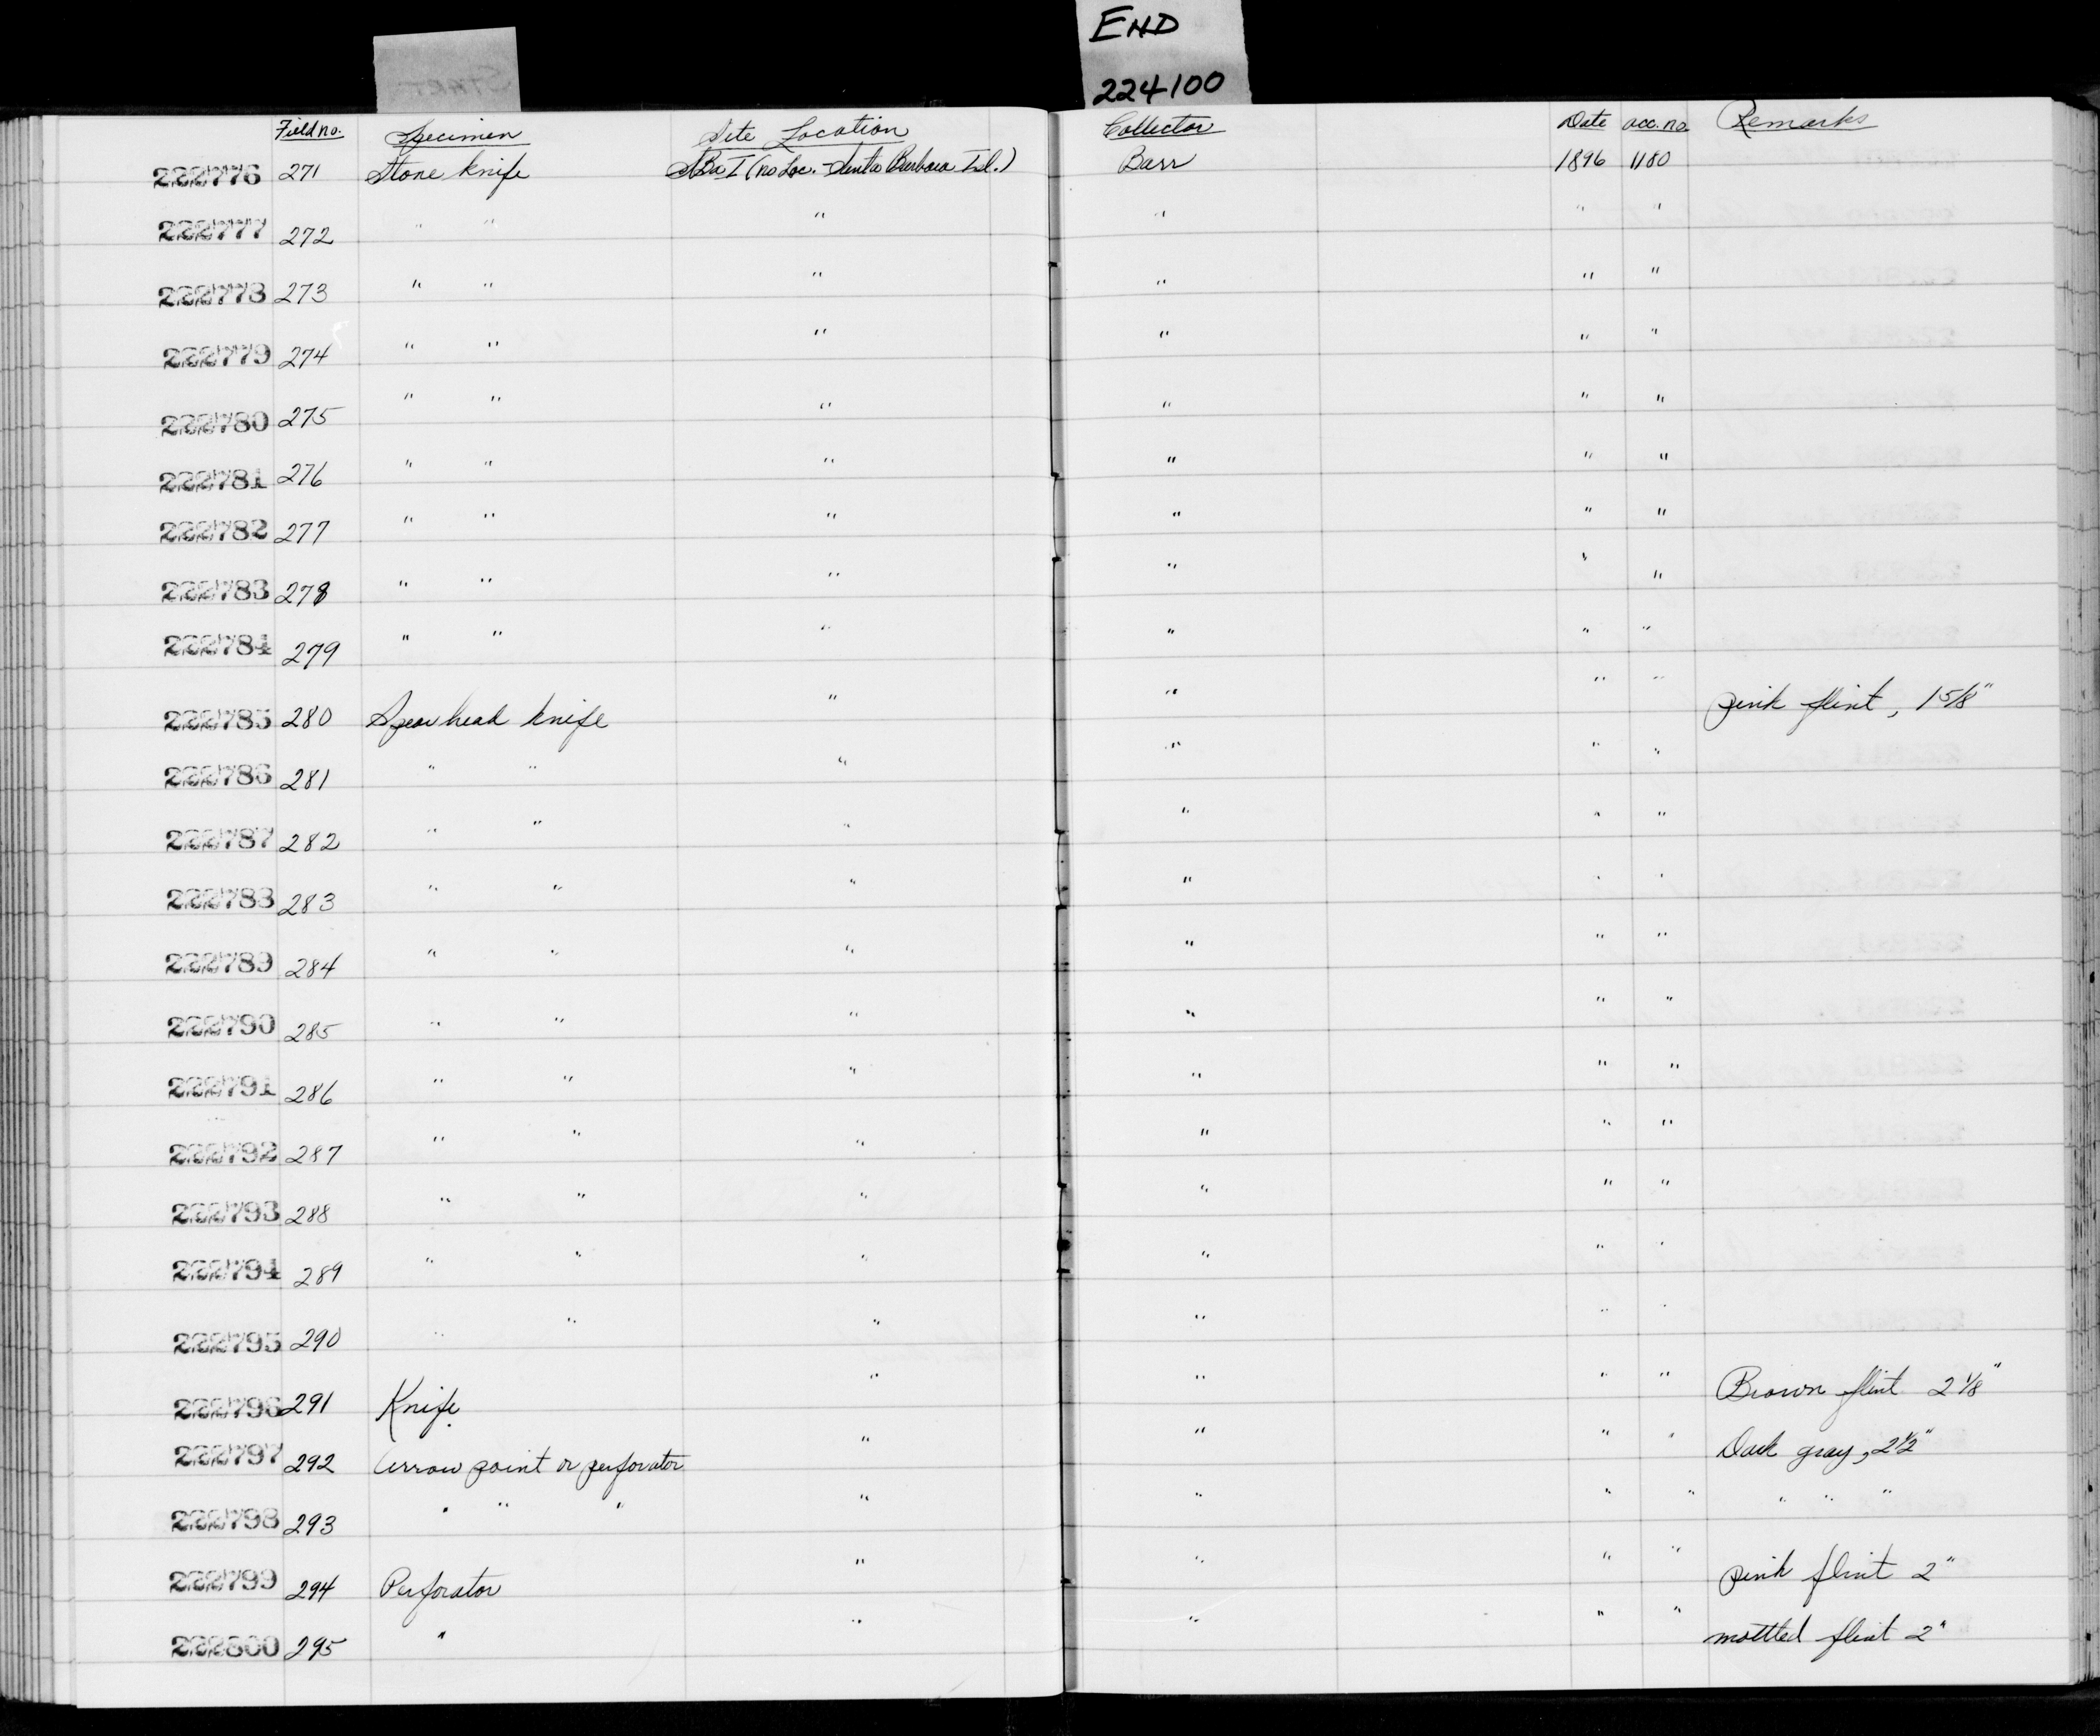 START
END
224100
Field no. Specimen Site Location Collector Date acc. no. Remarks
222776 271 Stone knife SBa I (no Loc. - Santa Barbara Isl.) Barr 1896 1180
222777 272 " " " " " "
222778 273 " " " " " "
222779 274 " " " " " "
222780 275 " " " " " "
222781 276 " " " " " "
222782 277 " " " " " "
222783 278 " " " " " "
222784 279 " " " " " "
222785 280 Spear head knife " " " " pink flint, 1 5/8"
222786 281 " " " " " "
222787 282 " " " " " "
222788 283 " " " " " "
222789 284 " " " " " "
222790 285 " " " " " "
222791 286 " " " " " "
222792 287 " " " " " "
222793 288 " " " " " "
222794 289 " " " " " "
222795 290 " " " " " "
222796 291 Knife " " " " Brown flint 2 1/8"
222797 292 Arrow point or perforator " " " " Dark gray, 2 1/2"
222798 293 " " " " " " " " " "
222799 294 Perforator " " " " pink flint 2"
222800 295 " " " " " mottled flint 2"